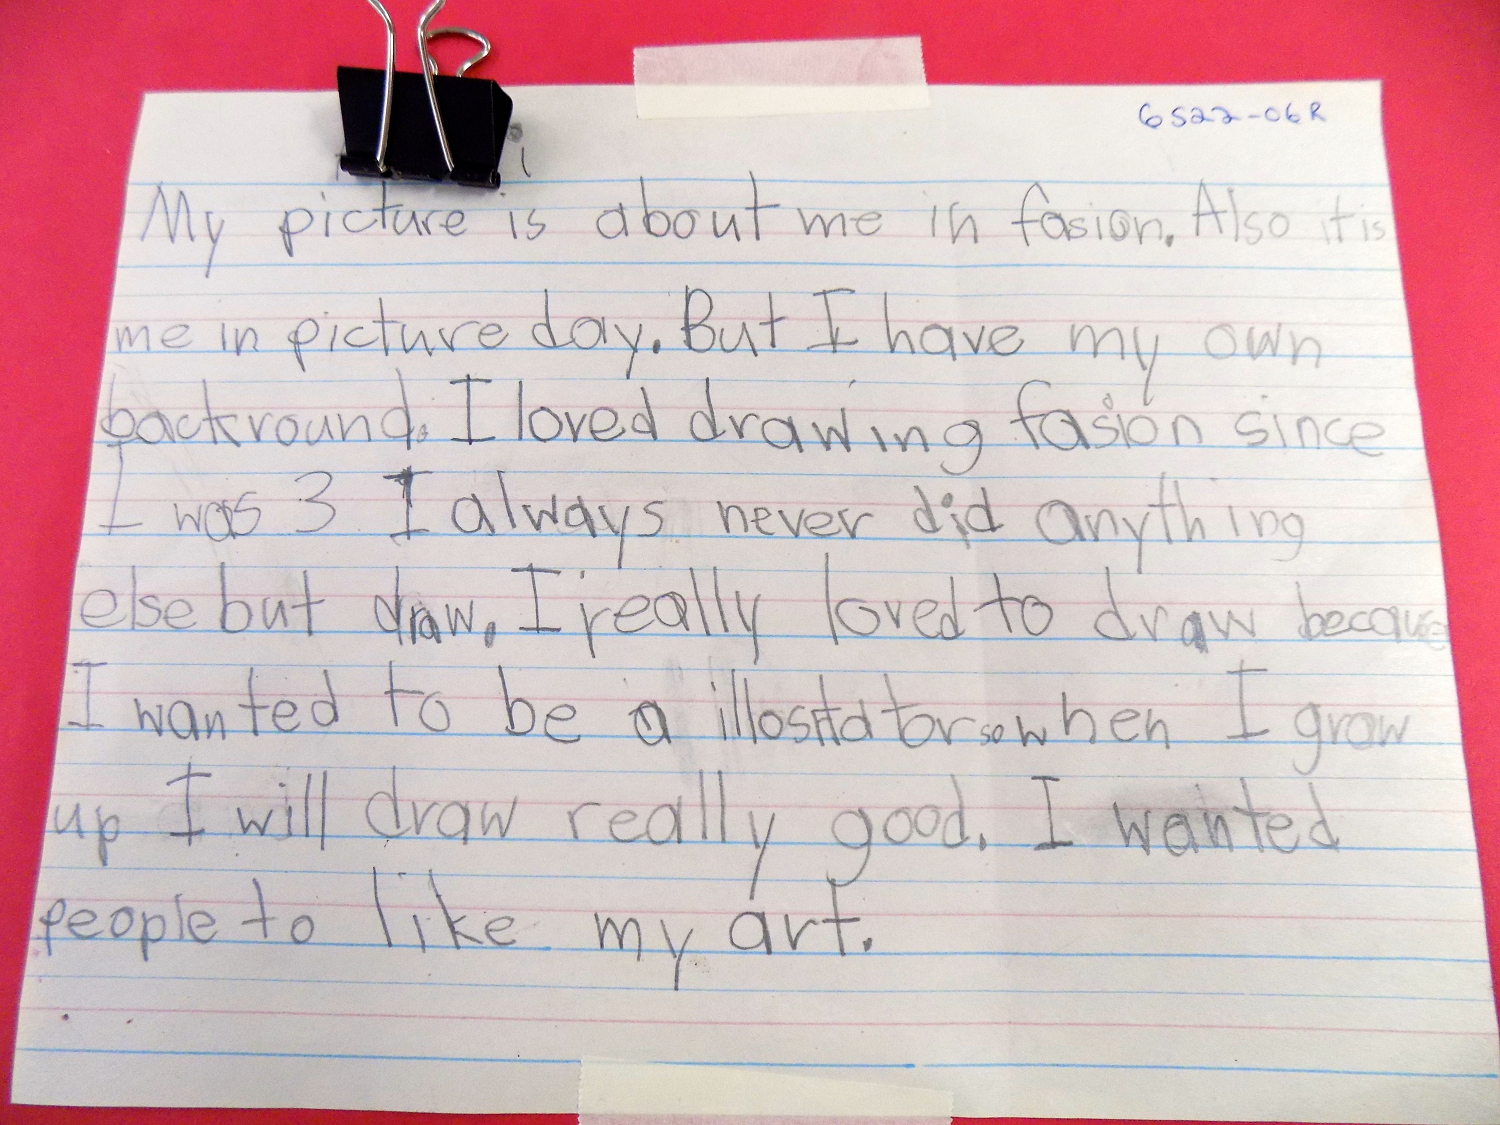 6S22-06R
My picture is about me in fasion. Also it is
me in picture day. But I have my own
backround. I loved drawing fasion since
I was 3 I always never did anything
else but draw. I really loved to draw because
I wanted to be a so when I grow
up I will draw really good. I wanted
people to like my art.